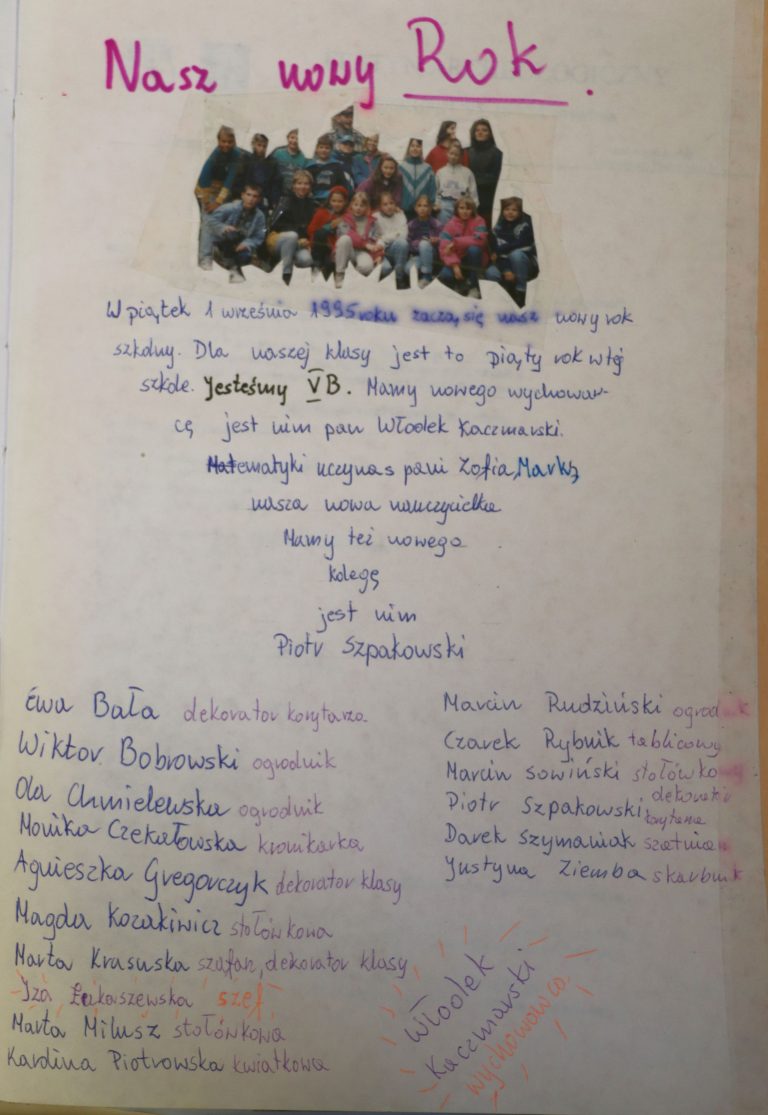 Nasz nowy Rok.
W piątek 1 września 1995 roku zaczą się nasz nowy rok
szkolny. Dla naszej klasy jest to piąty rok w tej
szkole. Jesteśmy V B. Mamy nowego wychowaw-
cę jest nim pan Włodek Kaczmarski.
Matematyki uczy nas pani Zofia,
nasza nowa nauczycielka
Mamy też nowego
kolegę
jest nim
Piotr Szpakowski
Ewa Bała dekorator korytarza
Wiktor Bobrowski ogrodnik
Ola Chmielewska ogrodnik
Monika Czekałowska kronikarka
Agnieszka Gregorczyk dekorator klasy
Magda Kozakiwicz stołówkowa
Marta Krasuska szafan, dekorator klasy
Iza Łukaszewska szef
Marta Milusz stołówkowa
Karolina Piotrowska kwiatkowa
Marcin Rudziński ogrodnik
Czarek Rybnik tablicowy
Marcin Sowiński stołówkowy
Piotr Szpakowski
Darek Szymaniak
Justyna Ziemba skarbnik
Włodek
Kaczmarski
wychowawca.